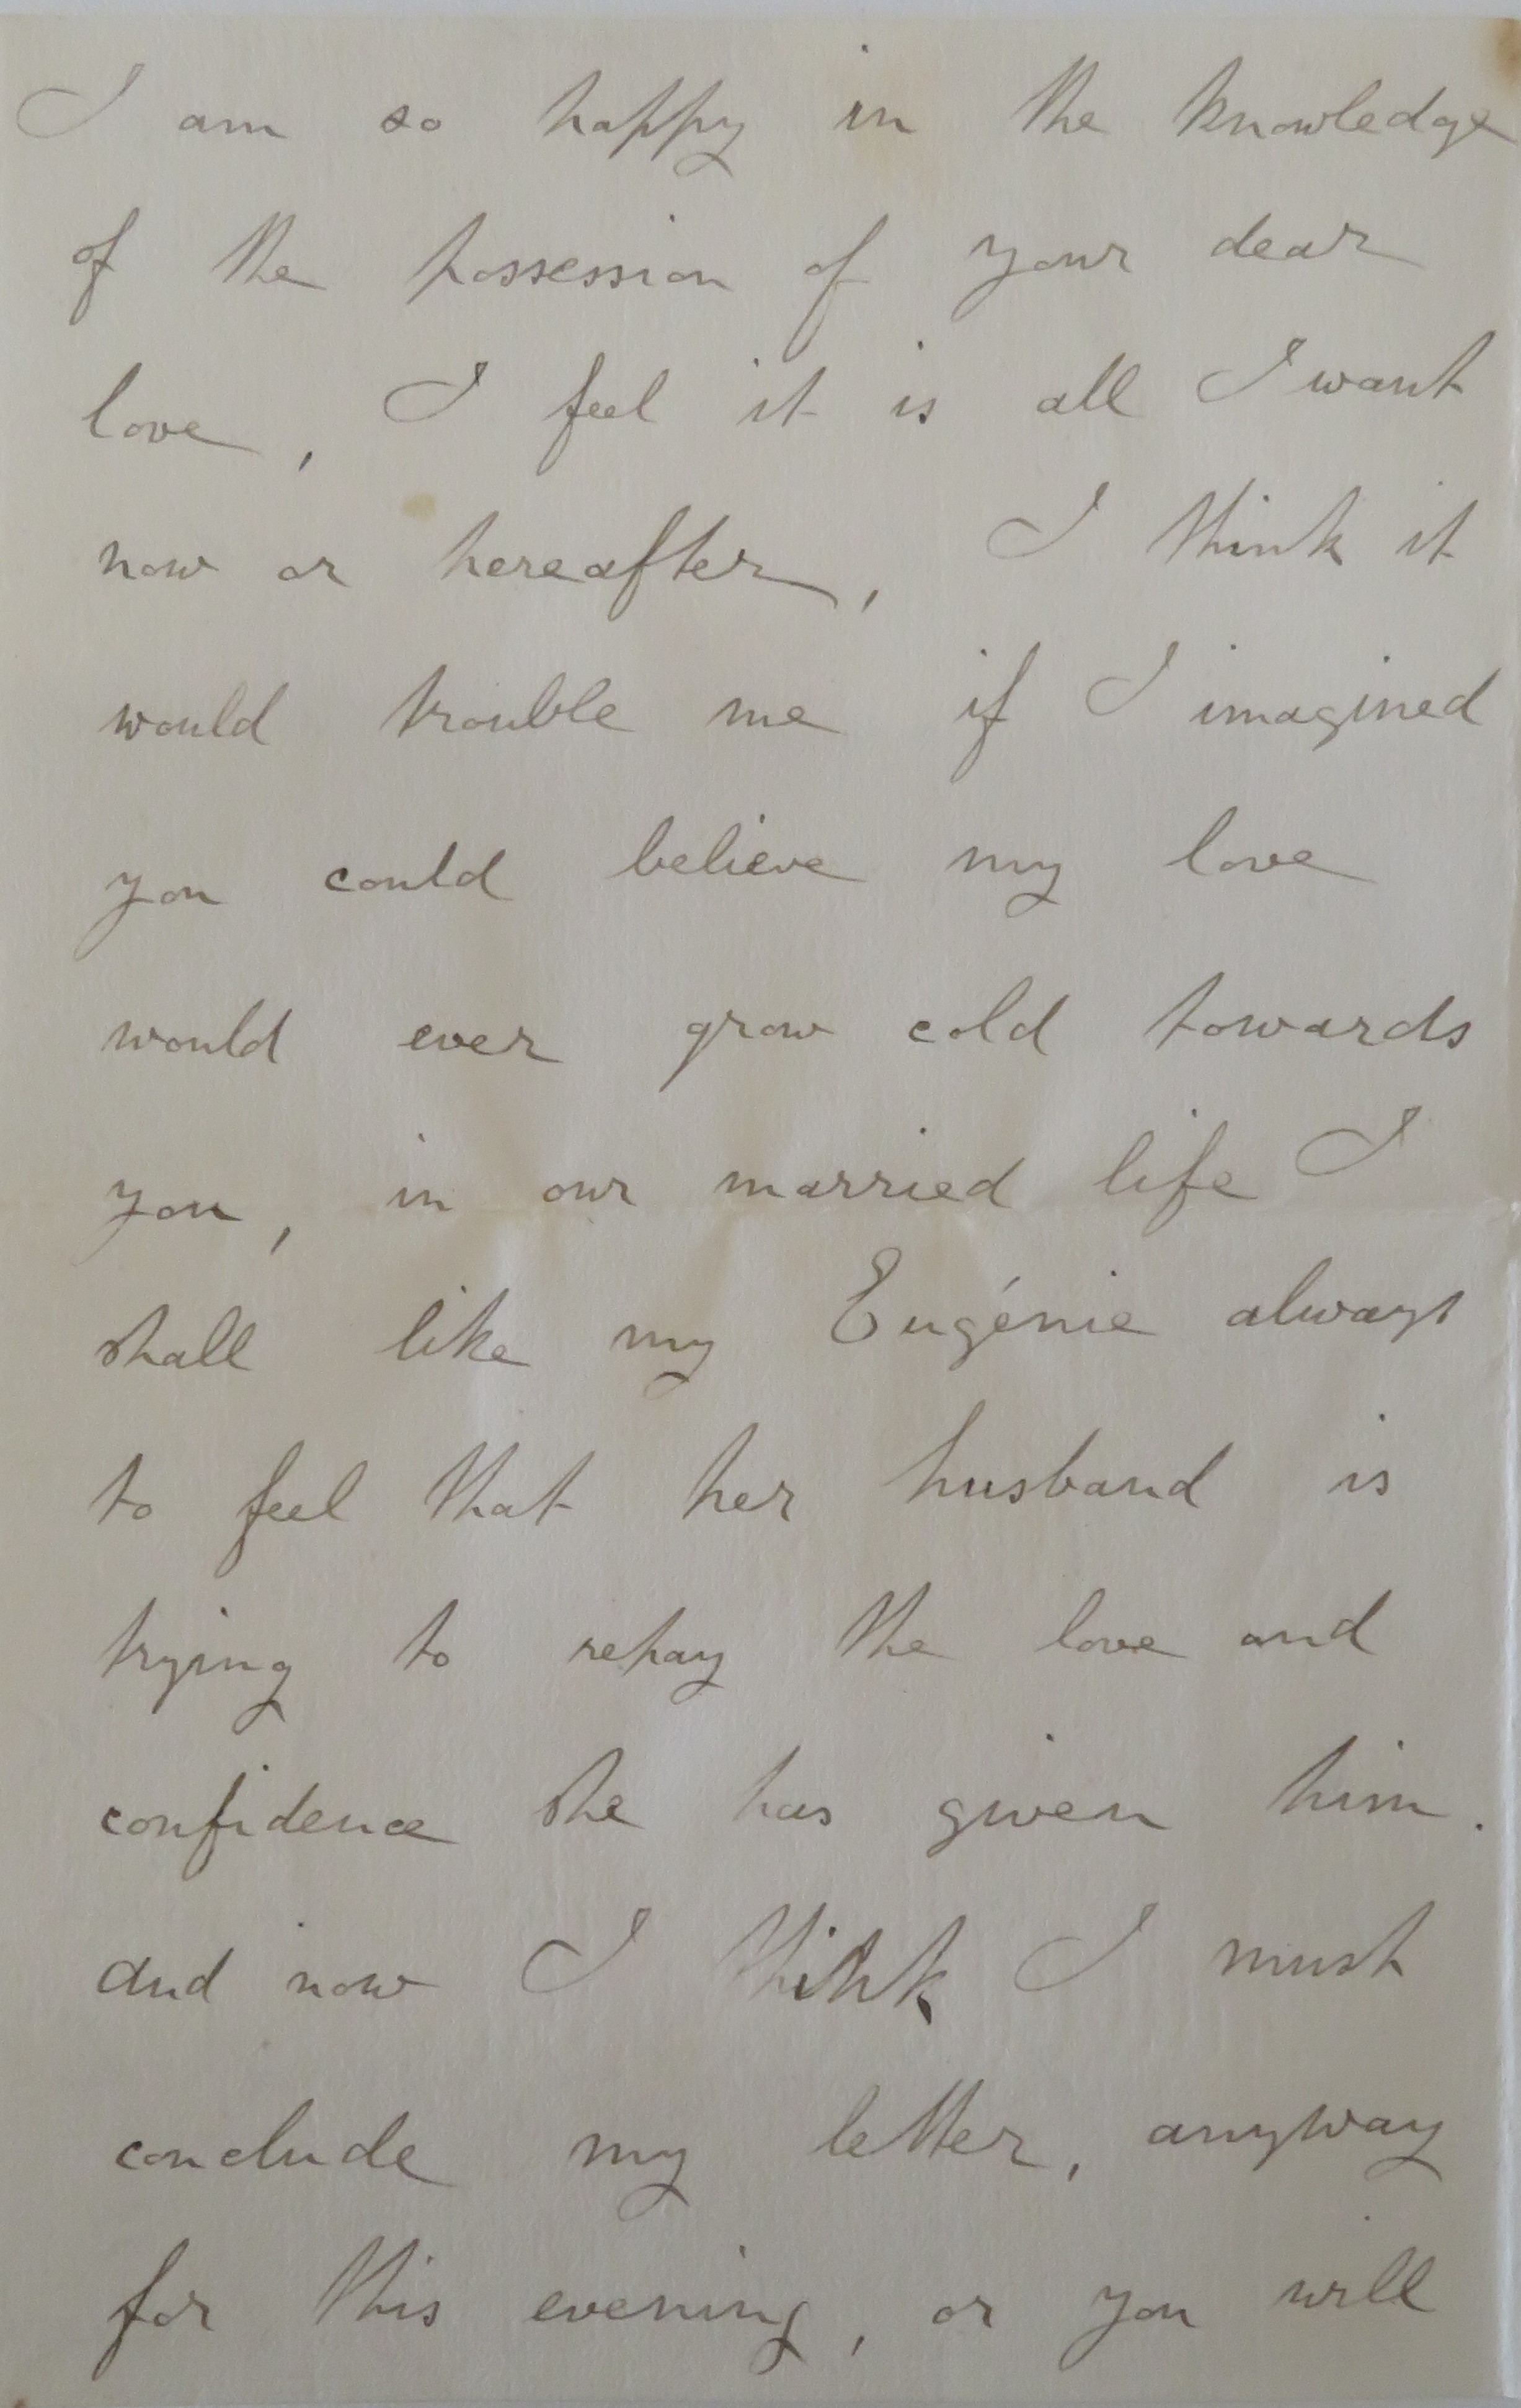 I am so happy in the knowledge
of the possession of your dear
love, I feel it is all I want
now or hereafter, I think it
would trouble me if I imagined
you could believe my love
would ever grow cold towards
you, in our married life I
shall like my Eugénie always
to feel that her husband is
trying to repay the love and
confidence she has given him.
and now I think I must
conclude my letter, anyway
for this evening, or you will